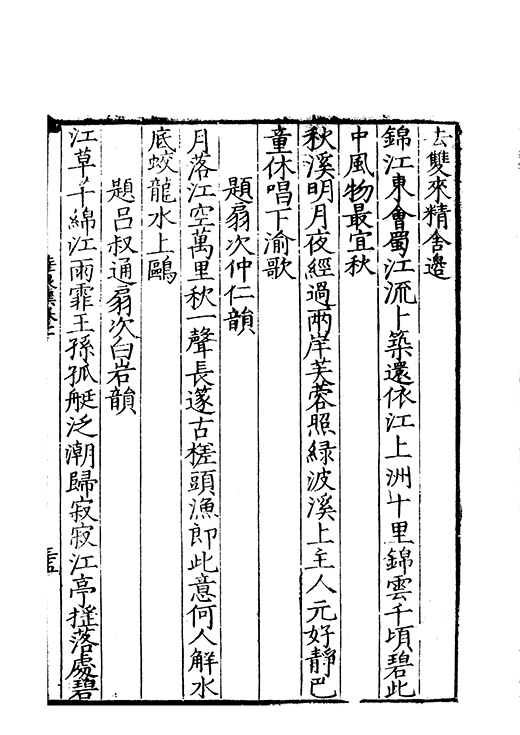 去雙來精舍邊
錦江東會蜀江流卜築還依江上洲十里錦雲千頃碧此
中風物最宜秋
秋溪明月夜經過兩岸芙蓉照緑波溪上主人元好靜巴
童休唱下渝歌
題扇次仲仁韻
月落江空萬里秋一聲長篴古槎頭漁郎此意何人解水
底蛟龍水上鷗
題呂叔通扇次白岩韻
江草芊綿江雨霏王孫孤艇泛潮歸寂寂江亭搖落處碧